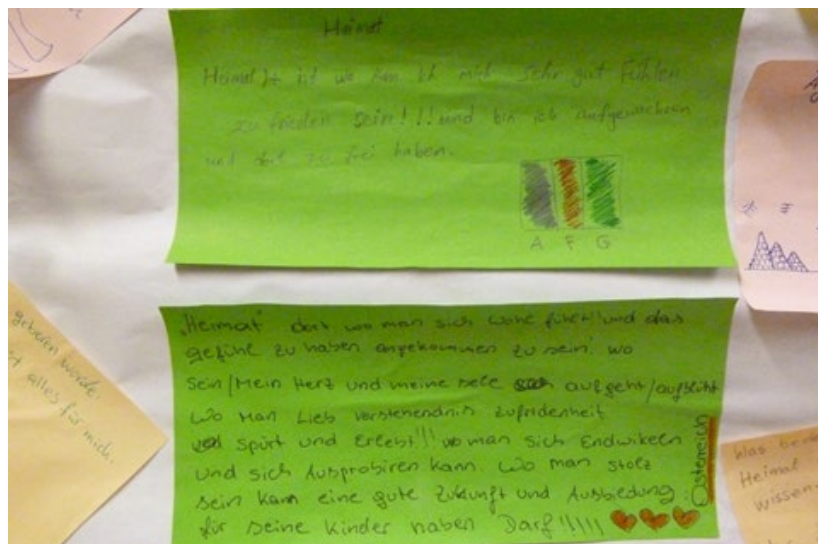 Heimat
Heimat ist wo kan ich mich sehr gut Fühlen
zu frieden sein!!! und bin ich aufgewachsen
und dort zu frei haben.
A F G
"Heimat" dort wo man sich wohl fühlt! und das
gefühl zu haben angekommen zu sein! wo
sein/Mein Herz und meine sele aufgeht/aufblüht
Wo Man Lieb verstehendnis zufridenheit
spürt und Erlebt!!! wo man sich Endwikeln
und sich Ausprobiren kann. Wo man stolz
sein kann eine gute Zukunft und Ausbiedung
für seine Kinder haben Darf!!!!!
Österreich
geboren wurde.
alles für mich.
Was
Heimat
wissen